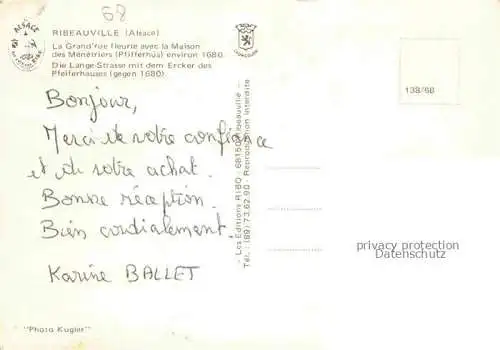 68
ALSACE
RIBEAUVILLE (Alsace)
La Grand'rue fleurie avec la Maison
des Ménétriers (Pfifferhüs) environ 1680.
Die Lange-Strasse mit dem Ercker des
Pfeiferhauses (gegen 1680).
138/68
Bonjour,
Merci de votre confiance
et de votre achat.
Bonne réception.
Bien cordialement
Karine BALLET
"Photo Kugler"
Les Editions RIBO - 68150 Ribeauville -
Tél.: (89) 73.62.90 - Reproduction interdite
privacy protection
Datenschutz